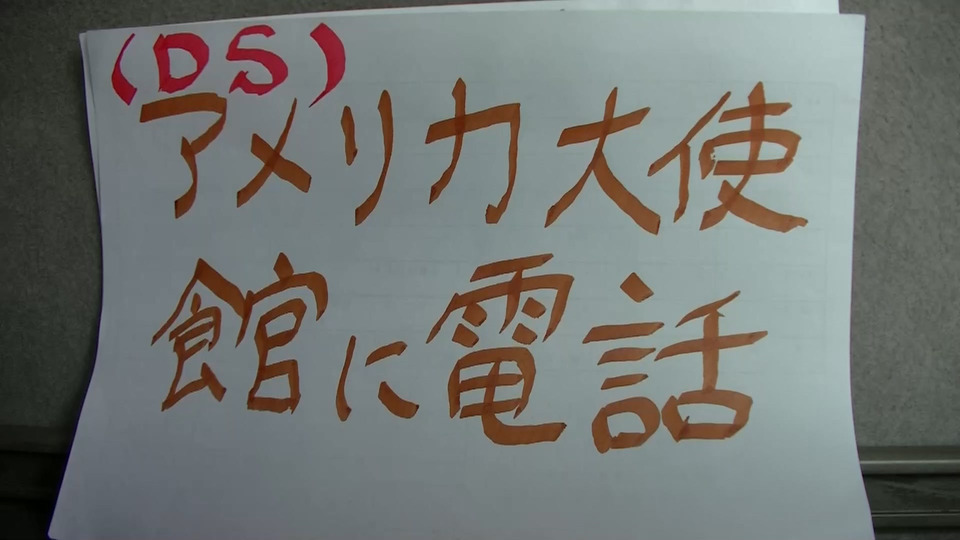 (DS)
アメリカ大使
館に電話